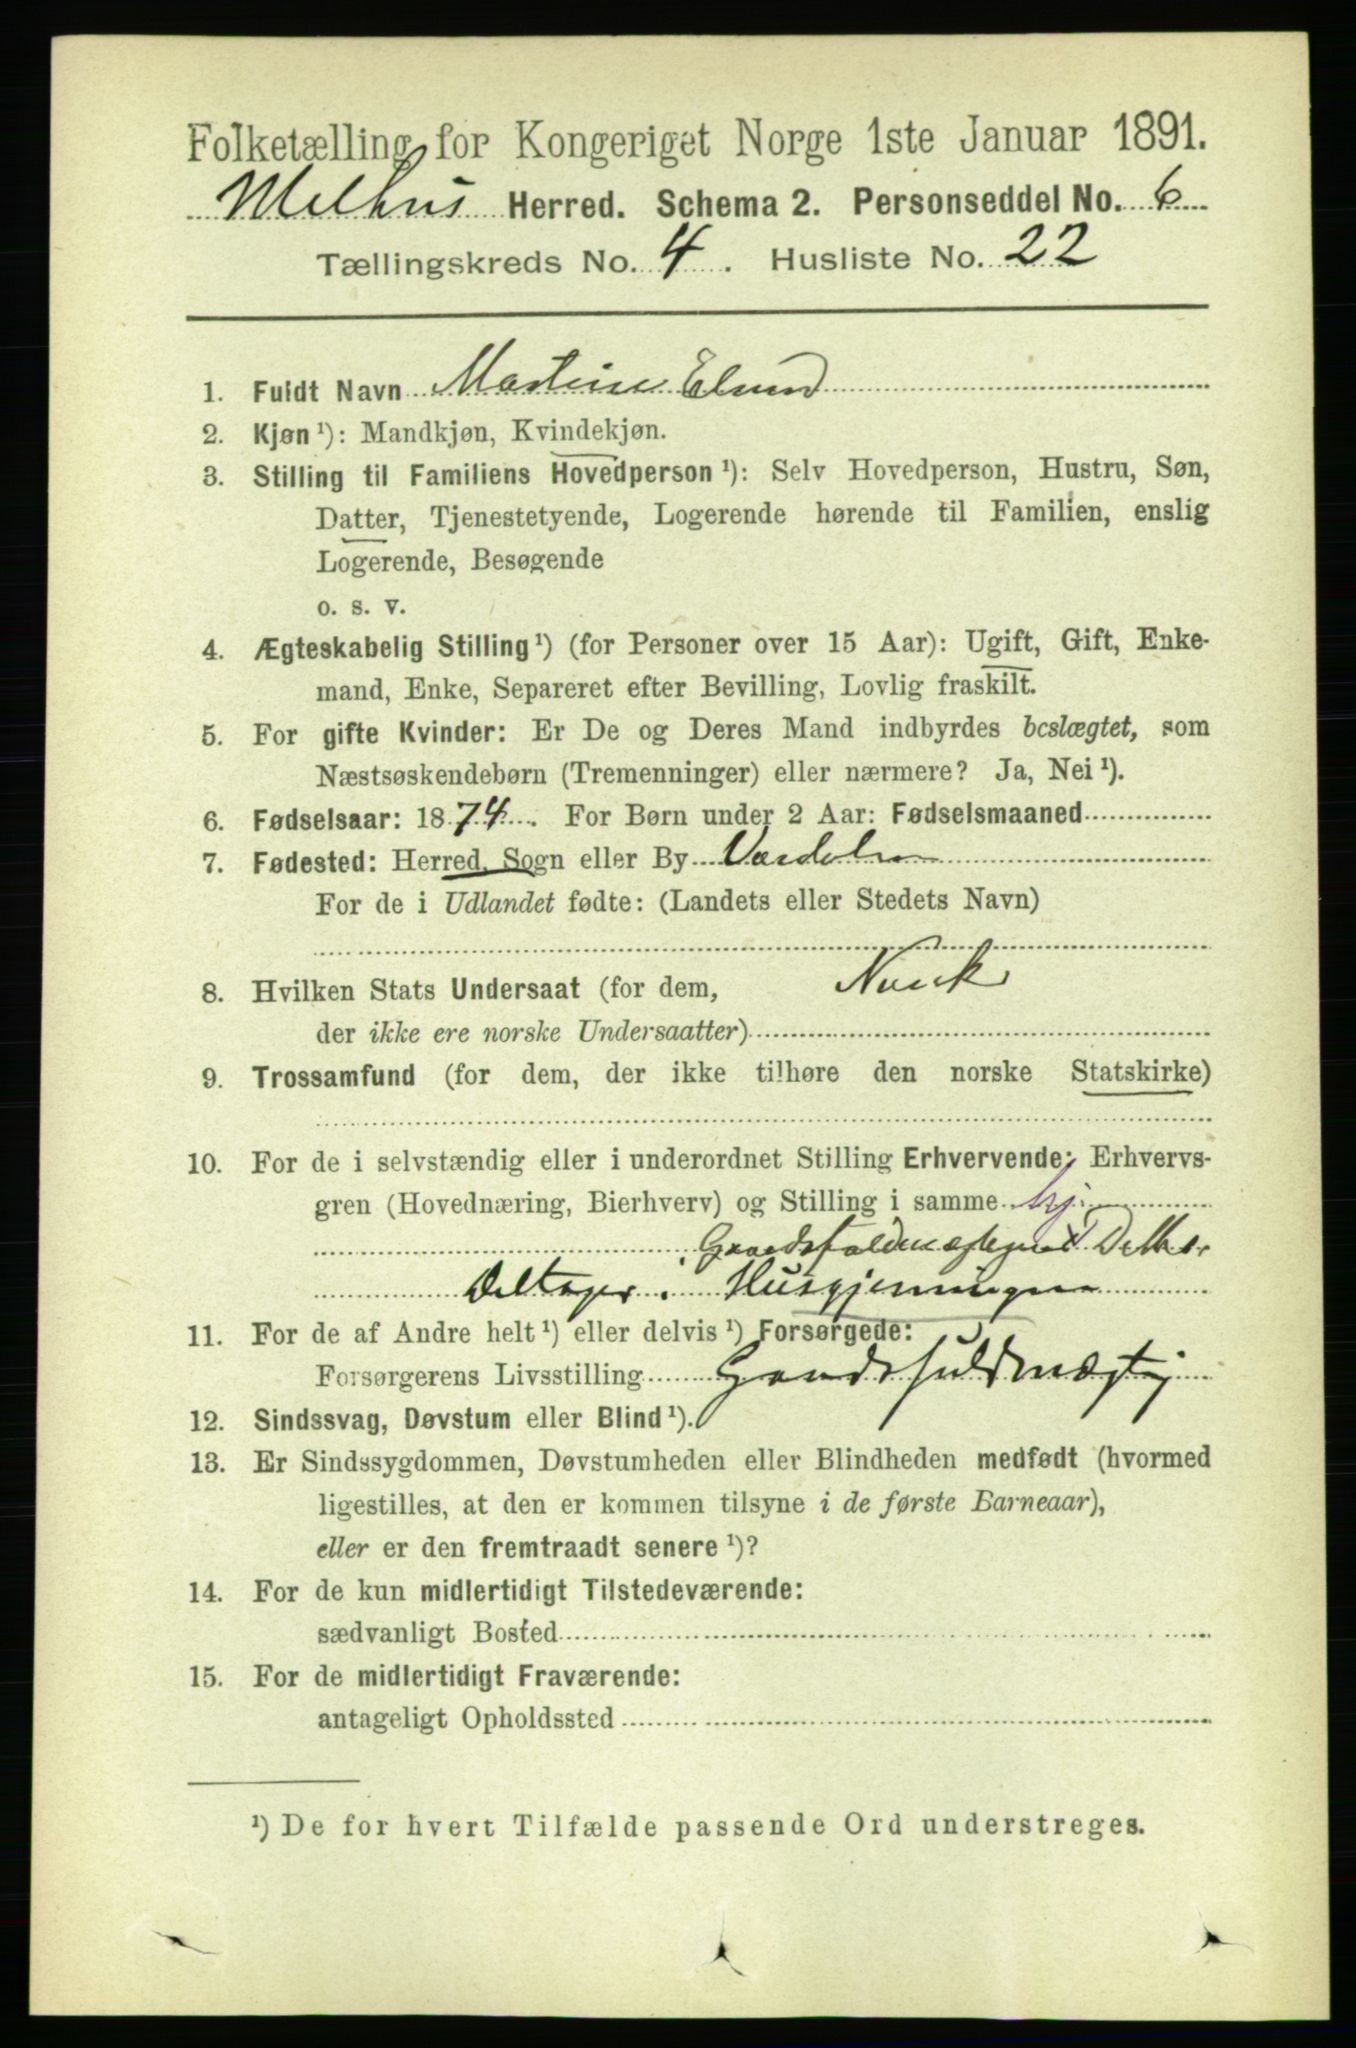 Folketælling for Kongeriget Norge 1ste Januar 1891.
Melhus Herred. Schema 2. Personseddel No. 6
Tællingskreds No. 4. Husliste No. 22
1. Fuldt Navn Martine Elnund
2. Kjøn ¹): Mandkjøn, Kvindekjøn.
3. Stilling til Familiens Hovedperson ¹): Selv Hovedperson, Hustru, Søn,
Datter, Tjenestetyende, Logerende hørende til Familien, enslig
Logerende, Besøgende
o. s. v.
4. Ægteskabelig Stilling ¹) (for Personer over 15 Aar): Ugift, Gift, Enke-
mand, Enke, Separeret efter Bevilling, Lovlig fraskilt.
5. For gifte Kvinder: Er De og Deres Mand indbyrdes beslægtet, som
Næstsøskendebørn (Tremenninger) eller nærmere? Ja, Nei ¹).
6. Fødselsaar: 1874. For Børn under 2 Aar: Fødselsmaaned
7. Fødested: Herred, Sogn eller By Værdalen
For de i Udlandet fødte: (Landets eller Stedets Navn)
8. Hvilken Stats Undersaat (for dem, Norsk
der ikke ere norske Undersaatter)
9. Trossamfund (for dem, der ikke tilhøre den norske Statskirke)
10. For de i selvstændig eller i underordnet Stilling Erhvervende: Erhvervs-
gren (Hovednæring, Bierhverv) og Stilling i samme hj.
Gaardsfuldmægtigens Datter
Deltager i Husgjerningen
11. For de af Andre helt ¹) eller delvis ¹) Forsørgede:
Forsørgerens Livsstilling Gaardsfuldmægtig
12. Sindssvag, Døvstum eller Blind ¹).
13. Er Sindssygdommen, Døvstumheden eller Blindheden medfødt (hvormed
ligestilles, at den er kommen tilsyne i de første Barneaar),
eller er den fremtraadt senere ¹)?
14. For de kun midlertidigt Tilstedeværende:
sædvanligt Bosted
15. For de midlertidigt Fraværende:
antageligt Opholdssted
¹) De for hvert Tilfælde passende Ord understreges.